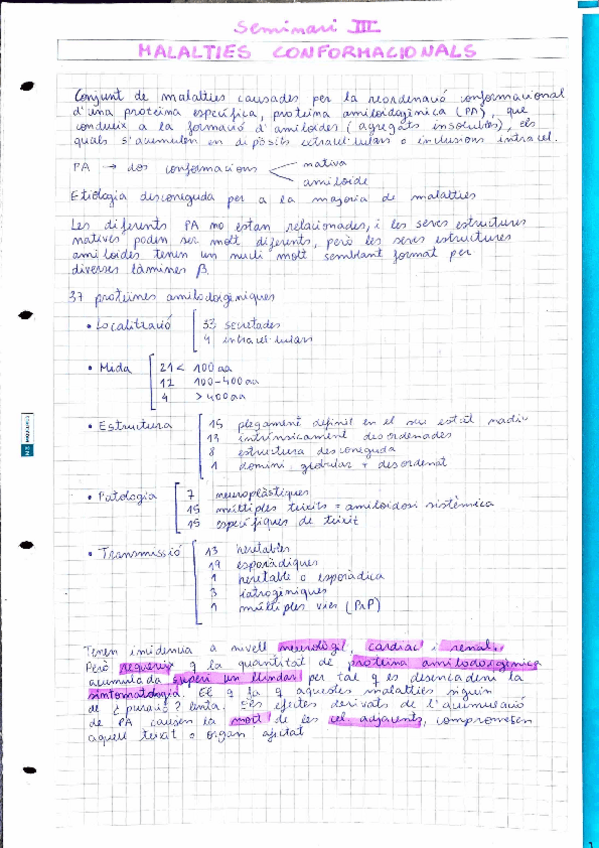 Seminari III
MALALTIES CONFORMACIONALS
Conjunt de malalties causades per la reordenació conformacional
d'una proteïna específica, proteïna amiloidogènica (PA), que
condueix a la formació d'amiloides (agregats insolubles), els
quals s'acumulen en dipòsits extracel·lulars o inclusions intracel.
PA → dos conformacions nativa
amiloide
Etiologia desconeguda per a la majoria de malalties
Les diferents PA no estan relacionades, i les seves estructures
natives poden ser molt diferents, però les seves estructures
amiloides tenen un nucli molt semblant format per
diverses làmines β.
37 proteïnes amiloidogèniques
• Localització 33 secretades
4 intracel·lulars
• Mida 21 < 100aa
12 100-400aa
4 > 400aa
• Estructura 15 plegament definit en el seu estat nadiu
13 intrínsicament desordenades
8 estructura desconeguda
1 domini globular + desordenat
• Patologia 7 neuroplàstiques
15 múltiples teixits = amiloidosi sistèmica
15 específiques de teixit
• Transmissió 13 heretables
19 esporàdiques
1 heretable o esporàdica
3 iatrogèniques
1 múltiples vies (PrP)
Tenen incidència a nivell neurològic, cardíac i renal.
Però requereix q la quantitat de proteïna amiloidogènica
acumulada superi un llindar per tal q es desencadeni la
simtomatologia. Et q fa q aquestes malalties siguin
de ¿ ? lenta. Els efectes derivats de l'acumulació
de PA causen la mort de les cel. adjacents, comprometen
aquell teixit o organ afectat